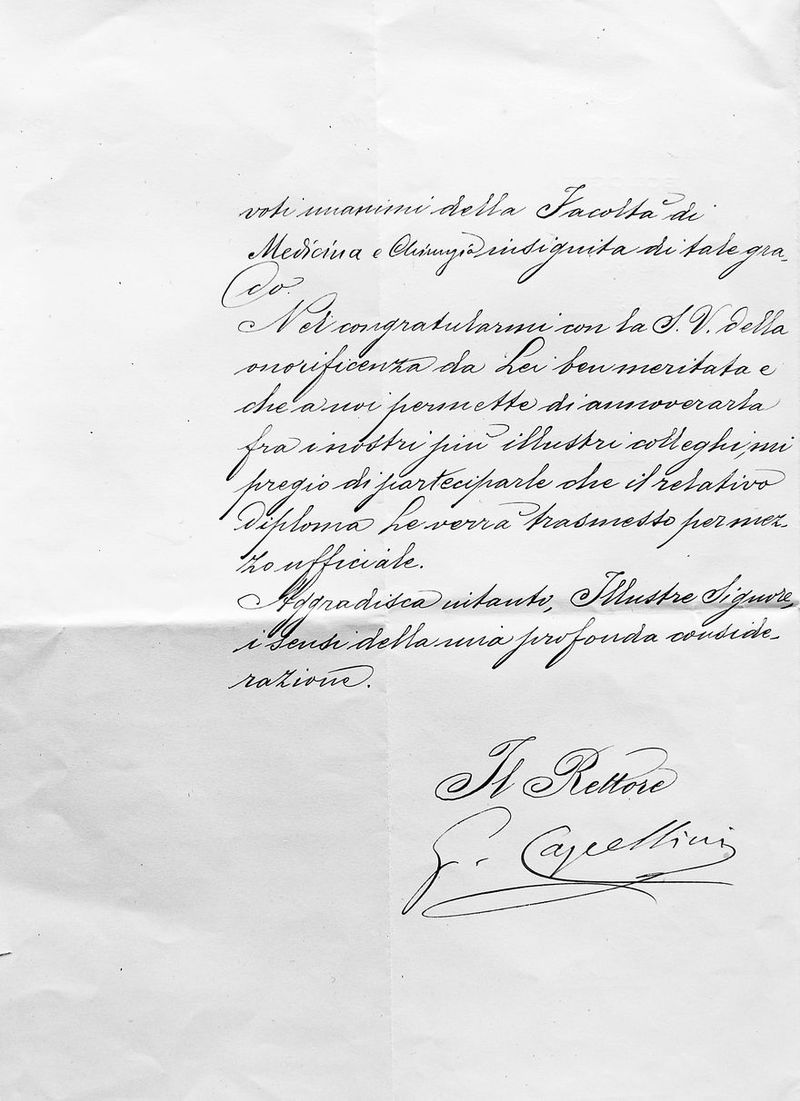 voti unanimi della Facoltà di
Medicina e Chirurgia insignita di tale gra-
do.
Nel congratularmi con la S. V. della
onorificenza da Lei ben meritata e
che a noi permette di annoverarla
fra i nostri più illustri colleghi, mi
pregio di parteciparle che il relativo
diploma Le verrà trasmesso per mez-
zo ufficiale.
Aggradisca intanto, Illustre Signore,
i sensi della mia profonda conside-
razione.
Il Rettore
G. Capellini